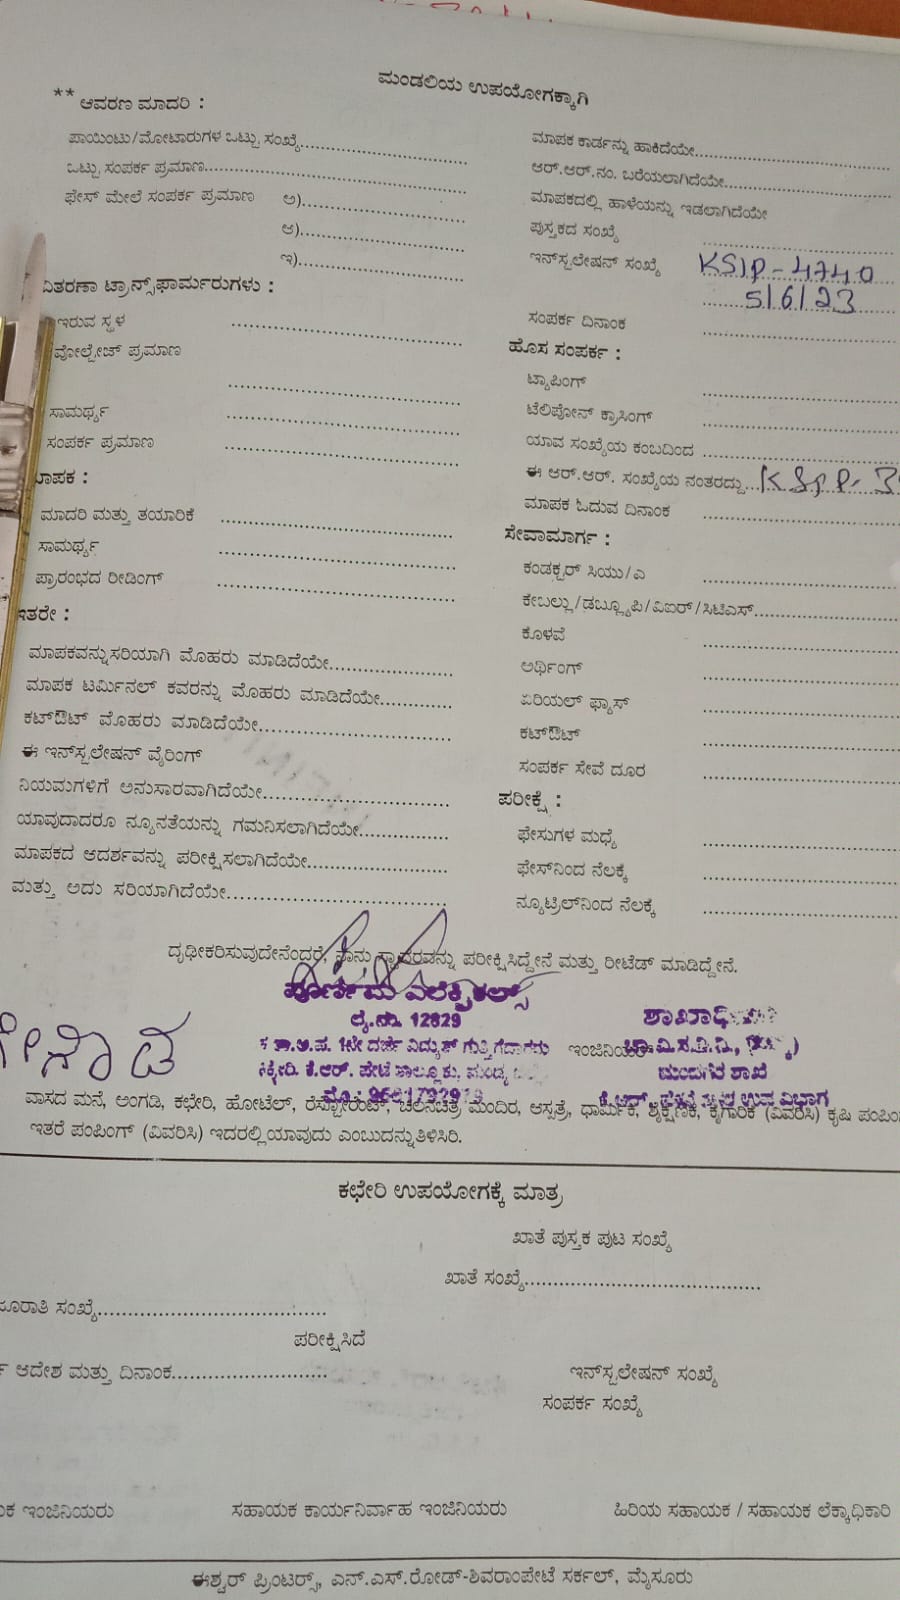 ಮಂಡಲಿಯ ಉಪಯೋಗಕ್ಕಾಗಿ
** ಆವರಣ ಮಾದರಿ :
ಪಾಯಿಂಟು/ಮೋಟಾರುಗಳ ಒಟ್ಟು ಸಂಖ್ಯೆ
ಒಟ್ಟು ಸಂಪರ್ಕ ಪ್ರಮಾಣ
ಫೇಸ್ ಮೇಲೆ ಸಂಪರ್ಕ ಪ್ರಮಾಣ ಅ)
ಆ)
ಇ)
ವಿತರಣಾ ಟ್ರಾನ್ಸ್‌ಫಾರ್ಮರುಗಳು :
ಇರುವ ಸ್ಥಳ
ವೋಲ್ಟೇಜ್ ಪ್ರಮಾಣ
ಸಾಮರ್ಥ್ಯ
ಸಂಪರ್ಕ ಪ್ರಮಾಣ
ಮಾಪಕ :
ಮಾದರಿ ಮತ್ತು ತಯಾರಿಕೆ
ಸಾಮರ್ಥ್ಯ
ಪ್ರಾರಂಭದ ರೀಡಿಂಗ್
ಇತರೇ :
ಮಾಪಕವನ್ನು ಸರಿಯಾಗಿ ಮೊಹರು ಮಾಡಿದೆಯೇ
ಮಾಪಕ ಟರ್ಮಿನಲ್ ಕವರನ್ನು ಮೊಹರು ಮಾಡಿದೆಯೇ
ಕಟ್‌ಔಟ್ ಮೊಹರು ಮಾಡಿದೆಯೇ
ಈ ಇನ್‌ಸ್ಟಲೇಷನ್ ವೈರಿಂಗ್
ನಿಯಮಗಳಿಗೆ ಅನುಸಾರವಾಗಿದೆಯೇ
ಯಾವುದಾದರೂ ನ್ಯೂನತೆಯನ್ನು ಗಮನಿಸಲಾಗಿದೆಯೇ
ಮಾಪಕದ ಆದರ್ಶವನ್ನು ಪರೀಕ್ಷಿಸಲಾಗಿದೆಯೇ
ಮತ್ತು ಅದು ಸರಿಯಾಗಿದೆಯೇ
ಮಾಪಕ ಕಾರ್ಡನ್ನು ಹಾಕಿದೆಯೇ
ಆರ್.ಆರ್.ನಂ. ಬರೆಯಲಾಗಿದೆಯೇ
ಮಾಪಕದಲ್ಲಿ ಹಾಳೆಯನ್ನು ಇಡಲಾಗಿದೆಯೇ
ಪುಸ್ತಕದ ಸಂಖ್ಯೆ
ಇನ್‌ಸ್ಟಲೇಷನ್ ಸಂಖ್ಯೆ KSIP-4740
5/6/23
ಸಂಪರ್ಕ ದಿನಾಂಕ
ಹೊಸ ಸಂಪರ್ಕ :
ಟ್ಯಾಪಿಂಗ್
ಟೆಲಿಪೋನ್ ಕ್ರಾಸಿಂಗ್
ಯಾವ ಸಂಖ್ಯೆಯ ಕಂಬದಿಂದ
ಈ ಆರ್.ಆರ್. ಸಂಖ್ಯೆಯ ನಂತರದ್ದು
ಮಾಪಕ ಓದುವ ದಿನಾಂಕ
ಸೇವಾಮಾರ್ಗ :
ಕಂಡಕ್ಟರ್ ಸಿಯು/ಎ
ಕೇಬಲ್ಲು/ಡಬ್ಲ್ಯೂಪಿ/ವಿಐರ್/ಸಿಟಿಎಸ್
ಕೊಳವೆ
ಅರ್ಥಿಂಗ್
ಏರಿಯಲ್ ಫ್ಯೂಸ್
ಕಟ್‌ಔಟ್
ಸಂಪರ್ಕ ಸೇವೆ ದೂರ
ಪರೀಕ್ಷೆ :
ಫೇಸುಗಳ ಮಧ್ಯೆ
ಫೇಸ್‌ನಿಂದ ನೆಲಕ್ಕೆ
ನ್ಯೂಟ್ರಲ್‌ನಿಂದ ನೆಲಕ್ಕೆ
ದೃಢೀಕರಿಸುವುದೇನೆಂದರೆ, ನಾನು ಸ್ಥಾವರವನ್ನು ಪರೀಕ್ಷಿಸಿದ್ದೇನೆ ಮತ್ತು ರೀಟೆಡ್ ಮಾಡಿದ್ದೇನೆ.
ಪೂರ್ಣಿಮ ಎಲೆಕ್ಟ್ರಿಕಲ್ಸ್
ಲೈ.ನಂ. 12829
ಇಂಜಿನಿಯರ್
ವಾಸದ ಮನೆ, ಅಂಗಡಿ, ಕಛೇರಿ, ಹೋಟೆಲ್, ರೆಸ್ಟೋರೆಂಟ್, ಚಲನಚಿತ್ರ ಮಂದಿರ, ಆಸ್ಪತ್ರೆ, ಧಾರ್ಮಿಕ, ಶೈಕ್ಷಣಿಕ, ಕೈಗಾರಿಕೆ (ವಿವರಿಸಿ) ಕೃಷಿ
ಇತರೆ ಪಂಪಿಂಗ್ (ವಿವರಿಸಿ) ಇದರಲ್ಲಿ ಯಾವುದು ಎಂಬುದನ್ನು ತಿಳಿಸಿರಿ.
ಕಛೇರಿ ಉಪಯೋಗಕ್ಕೆ ಮಾತ್ರ
ಖಾತೆ ಪುಸ್ತಕ ಪುಟ ಸಂಖ್ಯೆ
ಖಾತೆ ಸಂಖ್ಯೆ
ಸಂಖ್ಯೆ
ಪರೀಕ್ಷಿಸಿದೆ
ಆದೇಶ ಮತ್ತು ದಿನಾಂಕ
ಇನ್‌ಸ್ಟಲೇಷನ್ ಸಂಖ್ಯೆ
ಸಂಪರ್ಕ ಸಂಖ್ಯೆ
ಇಂಜಿನಿಯರು ಸಹಾಯಕ ಕಾರ್ಯನಿರ್ವಾಹ ಇಂಜಿನಿಯರು ಹಿರಿಯ ಸಹಾಯಕ / ಸಹಾಯಕ ಲೆಕ್ಕಾಧಿಕಾರಿ
ಈಶ್ವರ್ ಪ್ರಿಂಟರ್ಸ್, ಎನ್.ಎಸ್.ರೋಡ್-ಶಿವರಾಂಪೇಟೆ ಸರ್ಕಲ್, ಮೈಸೂರು